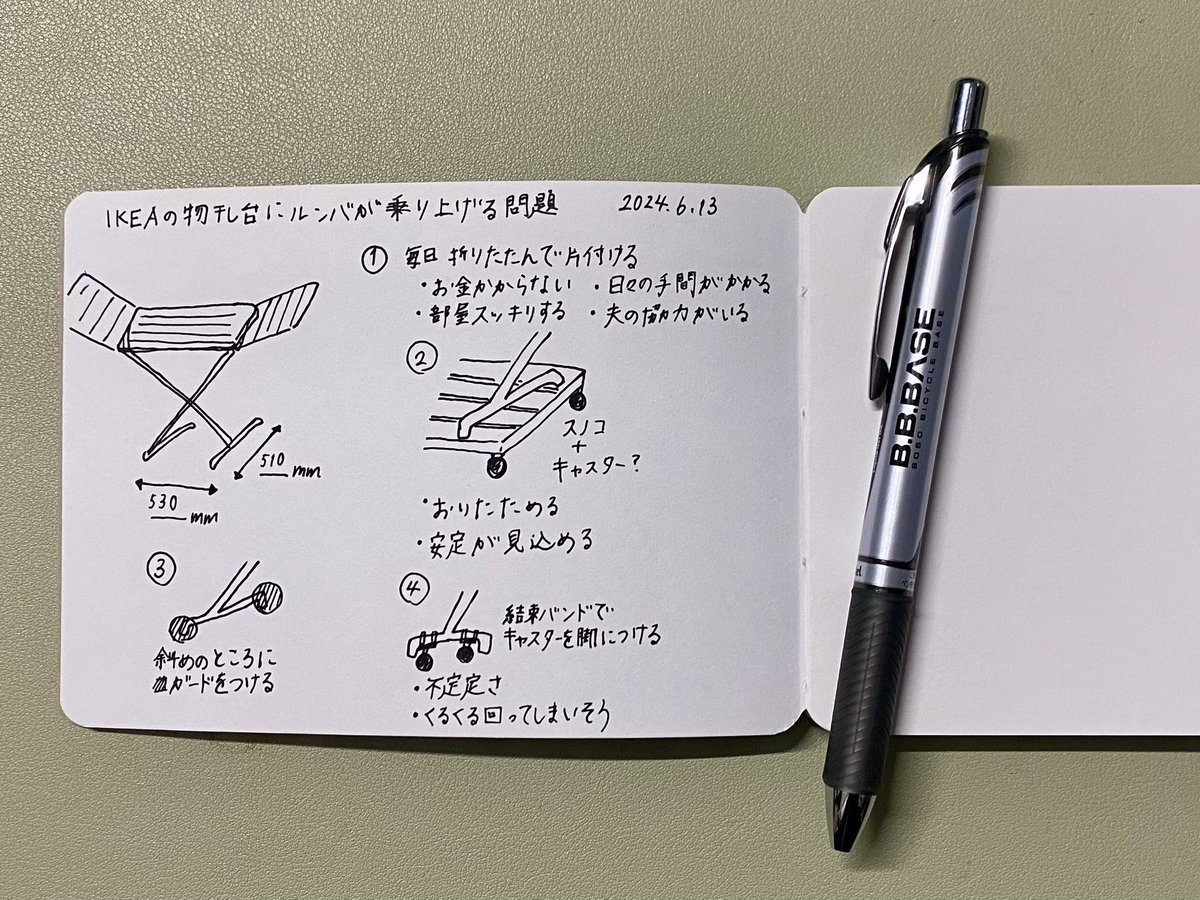 IKEAの物干し台にルンバが乗り上げる問題 2024.6.13
510 mm
530 mm
① 毎日 折りたたんで片付ける
・お金かからない ・日々の手間がかかる
・部屋スッキリする ・夫の協力がいる
②
スノコ
+
キャスター?
・おりたためる
・安定が見込める
③
斜めのところに
ガードをつける
④
結束バンドで
キャスターを脚につける
・不定定さ
・くるくる回ってしまいそう
B.B.BASE
BOSO BICYCLE BASE